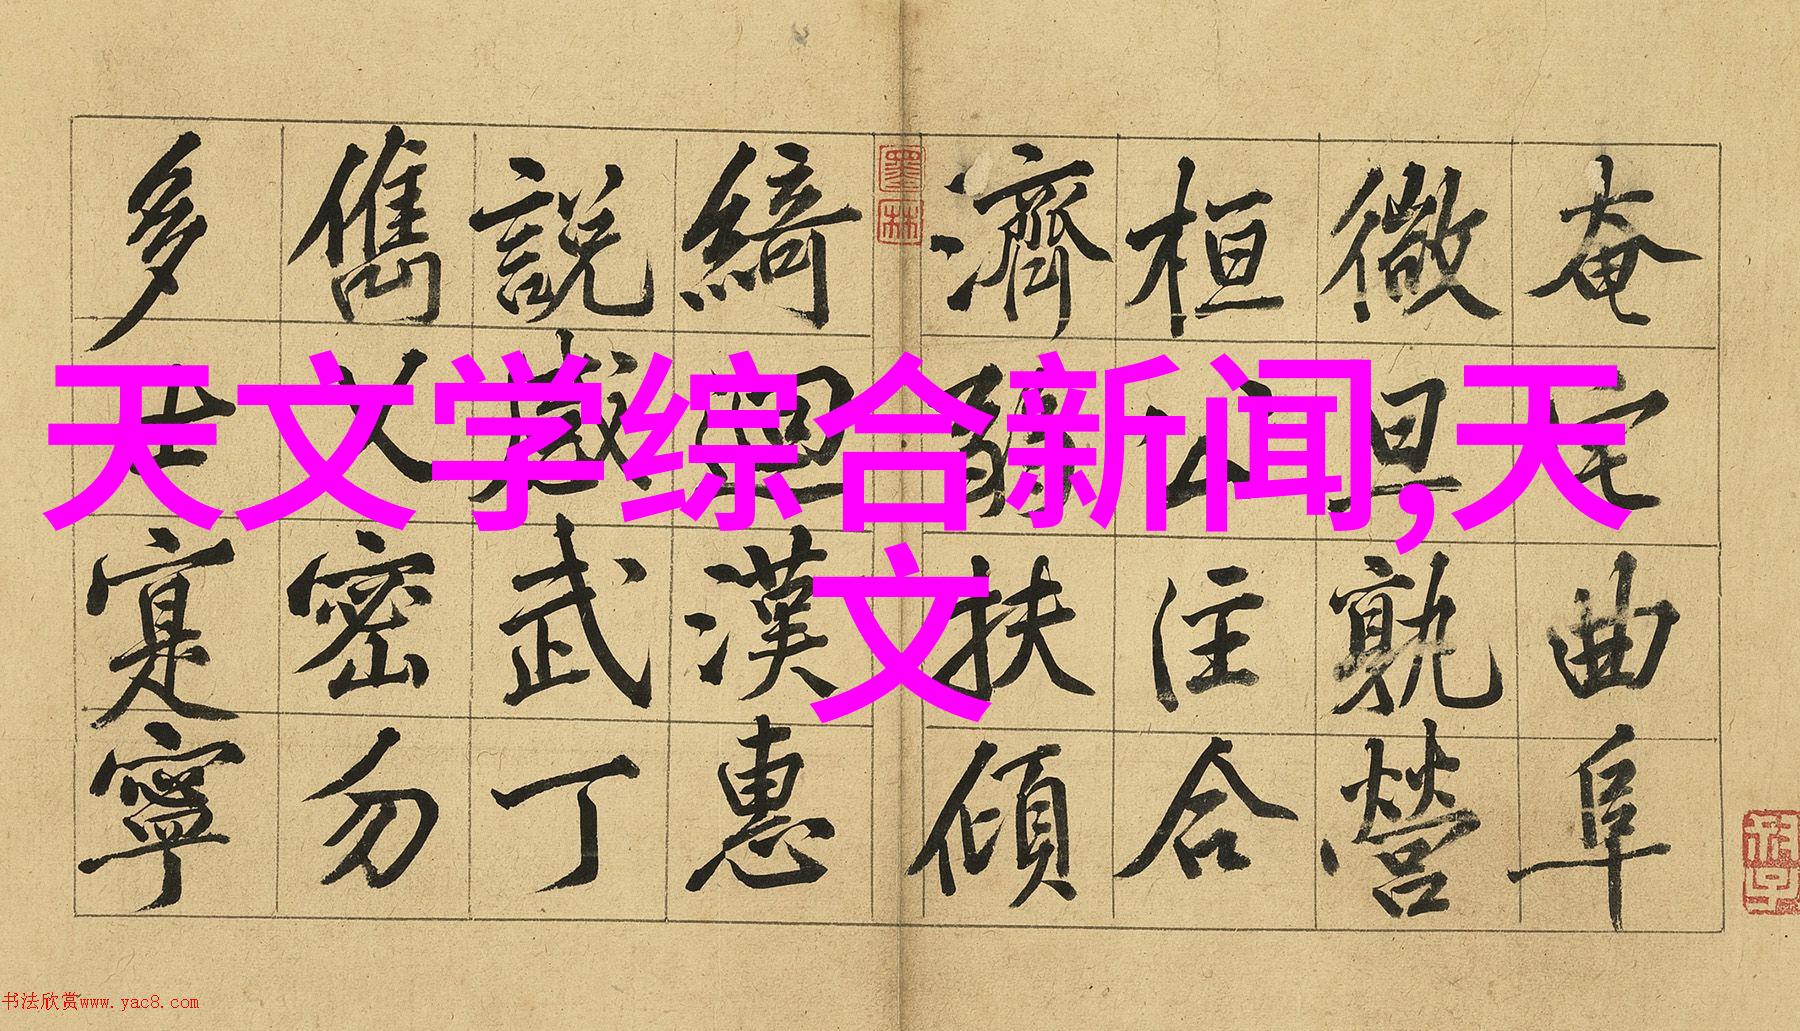 天文学综合新闻,天
文
奄宅曲阜
微旦孰營
桓公合
濟弱扶傾
綺迴漢惠
說感武丁
儁乂密勿
多士寔寧
墨林
书法欣赏www.yac8.com